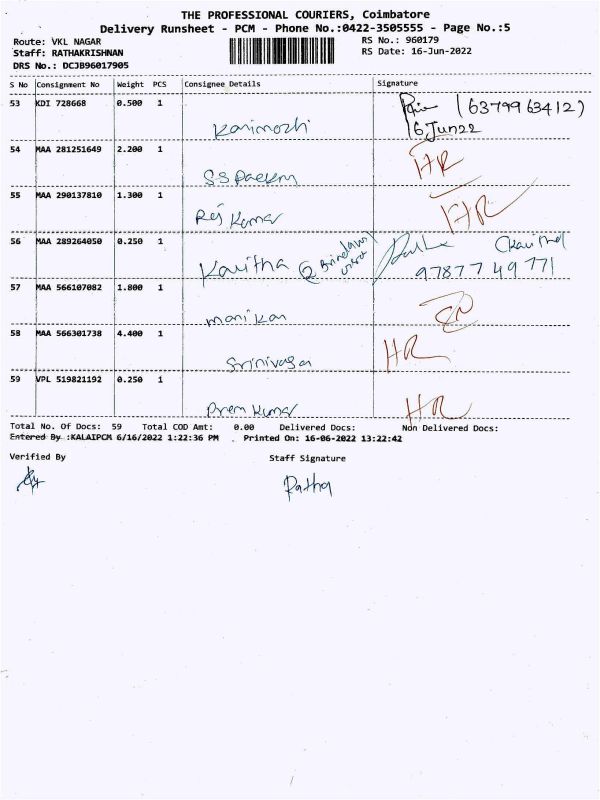 THE PROFESSIONAL COURIERS, Coimbatore
Delivery Runsheet - PCM - Phone No.:0422-3505555 - Page No.:5
Route: VKL NAGAR
RS No.: 960179
Staff: RATHAKRISHNAN
RS Date: 16-Jun-2022
DRS No.: DCJB96017905
S No Consignment No Weight PCS Consignee Details Signature
53 KDI 728668 0.500 1 (6379963412)
Karimozhi 16 Jun22
54 MAA 281251649 2.200 1 HR
SS
55 MAA 290137810 1.300 1 HR
Raj Kumar
56 MAA 289264050 0.250 1
Kavitha @ 9787749771
57 MAA 566107082 1.800 1
manikan
58 MAA 566301738 4.400 1 HR
Srinivasan
59 VPL 519821192 0.250 1 HR
Prem Kumar
Total No. Of Docs: 59 Total COD Amt: 0.00 Delivered Docs: Non Delivered Docs:
Entered By :KALAIPCM 6/16/2022 1:22:36 PM . Printed On: 16-06-2022 13:22:42
Verified By Staff Signature
Ratha